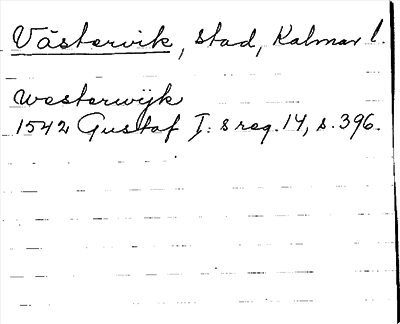 Västervik, stad, Kalmar l.
Westerwijk
1542 Gustaf I: s reg. 14, s. 396.